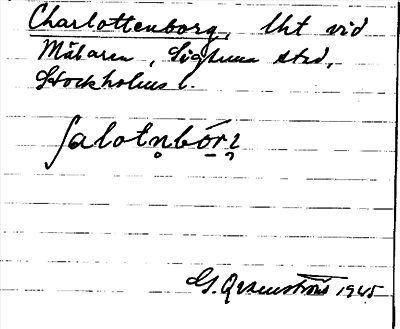 Charlottenborg, lht vid
Mälaren, Sigtuna stad,
Stockholms l.
ʃalotn̥bór̯
G. Qvarnström 1945